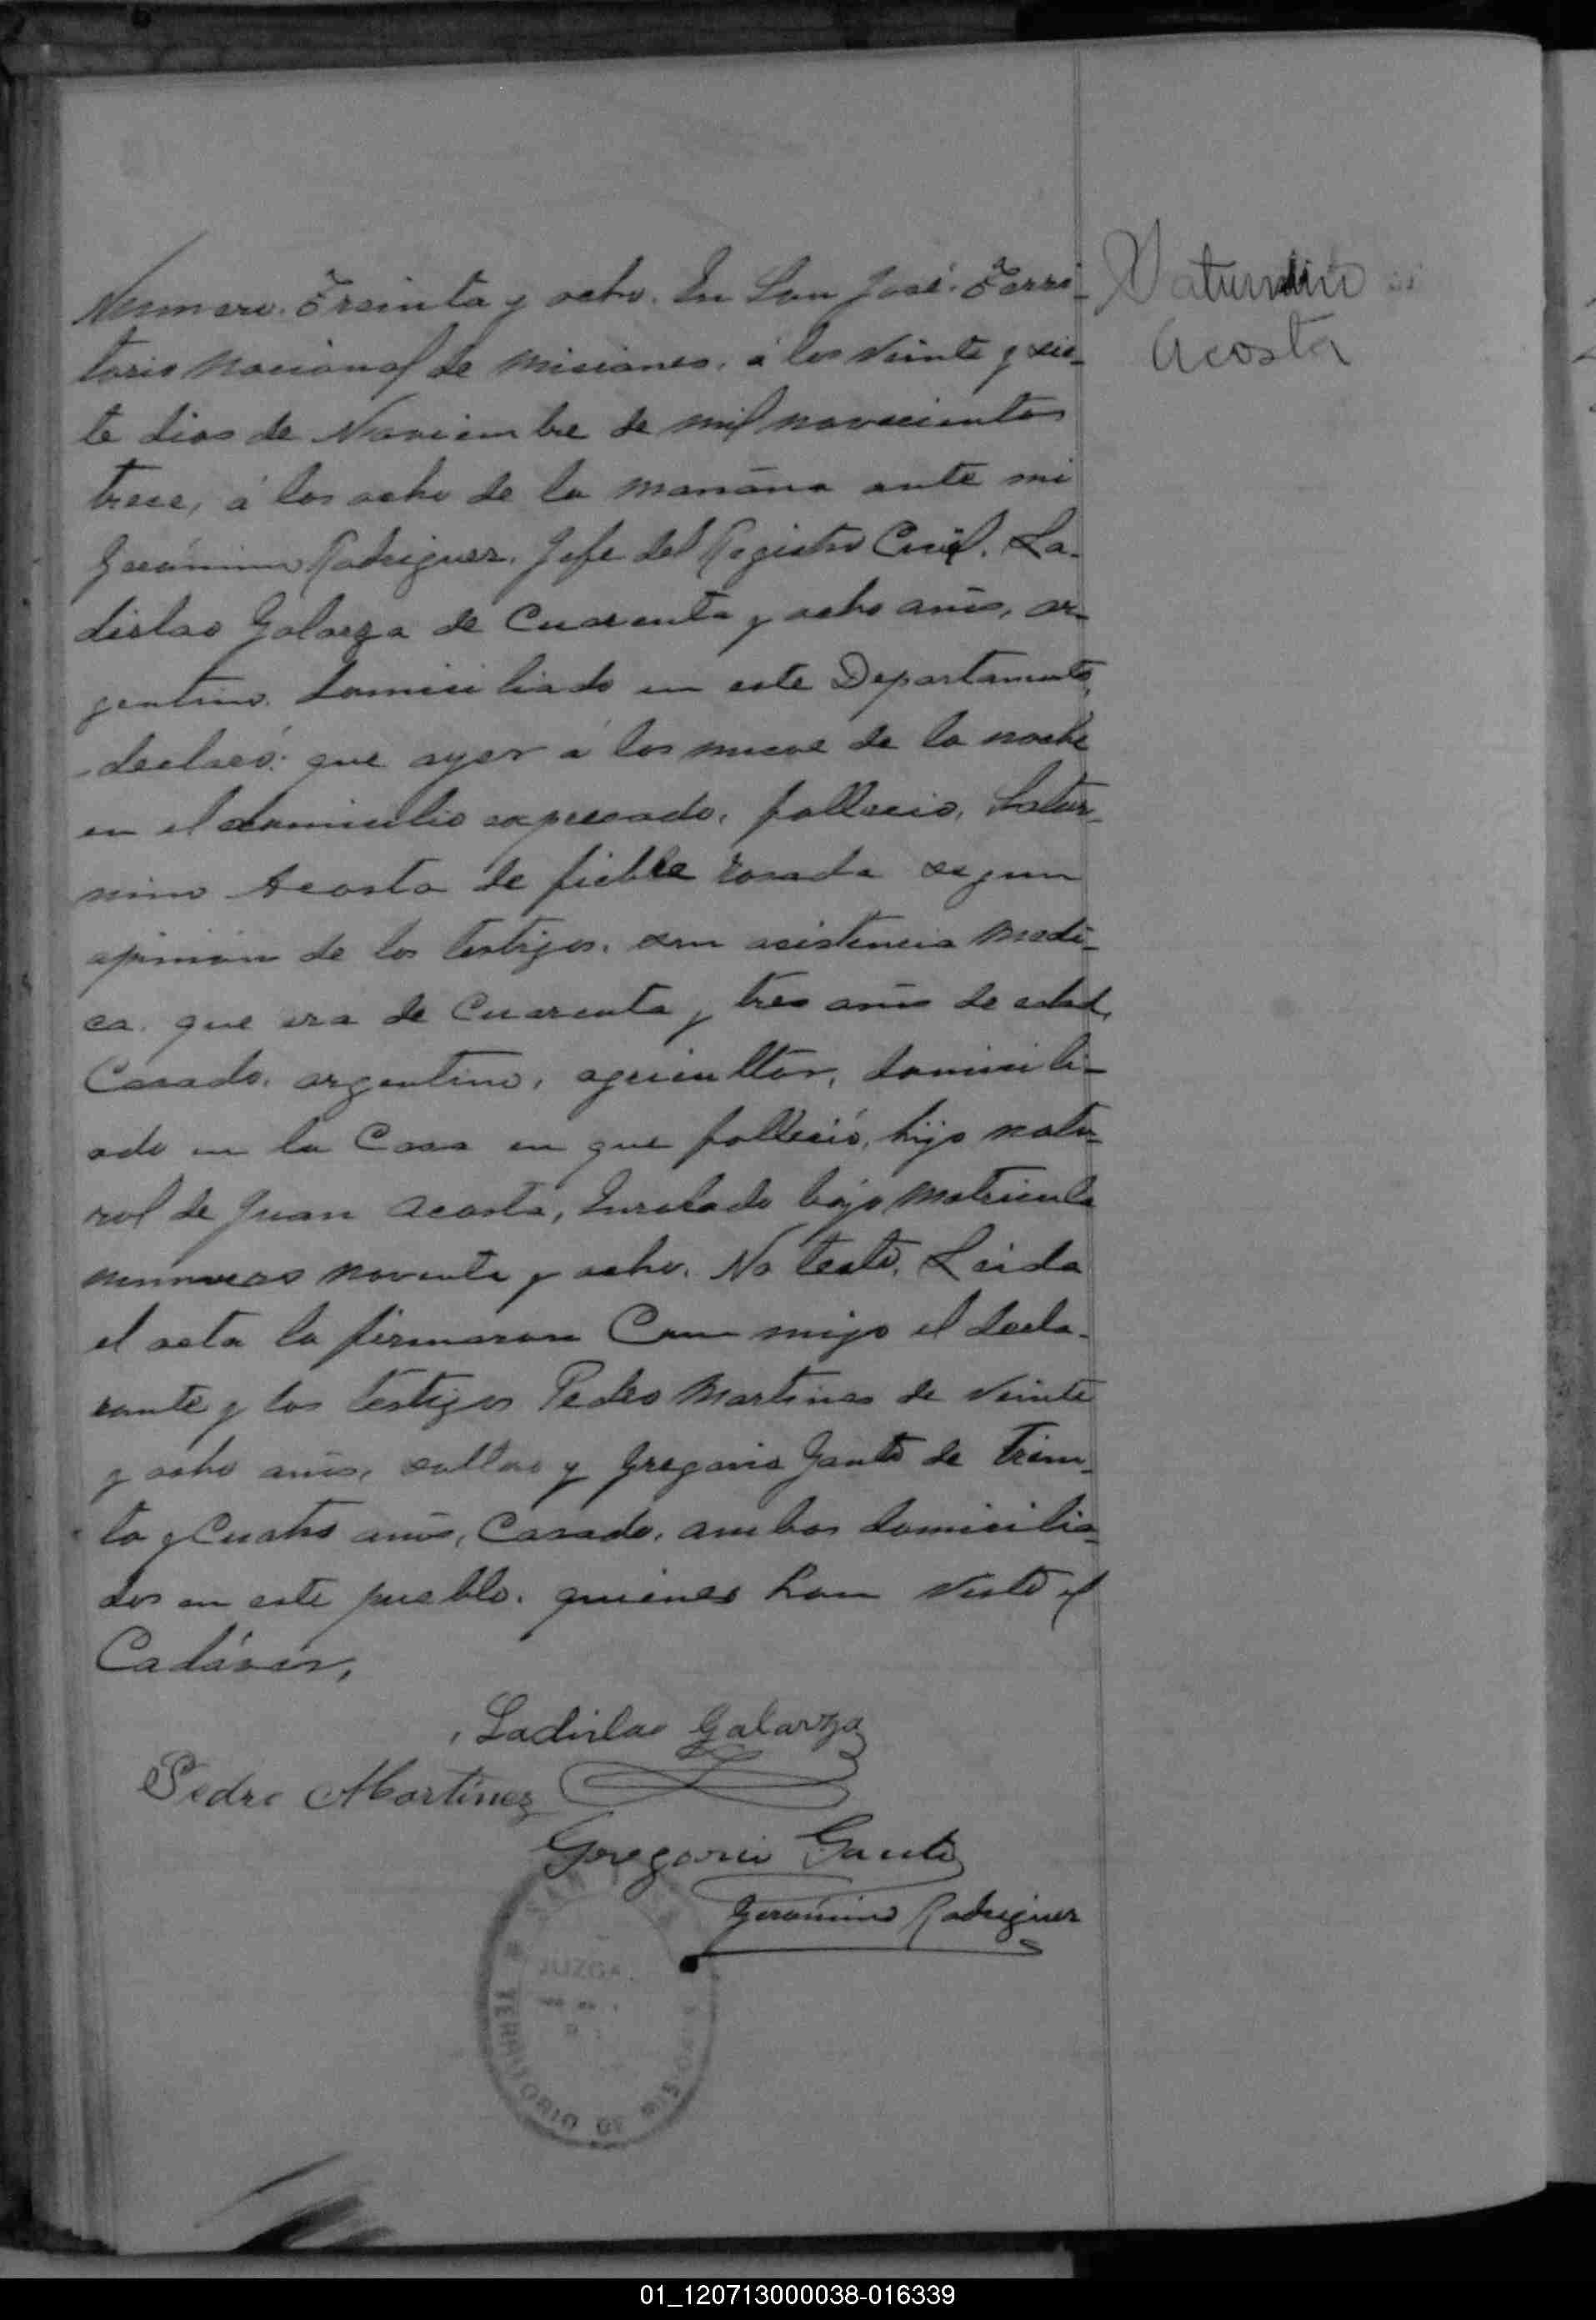 Numero. Treinta y ocho. En San José. Terri-
torio Nacional de Misiones, á los Veinte y sie-
te dias de Noviembre de mil novecientos
trece, á las ocho de la mañana ante mi
Gerónimo Rodriguez. Jefe del Registro Civil. La-
dislao Galarza de Cuarenta y ocho años, ar-
gentino. domiciliado en este Departamento,
declaró: que ayer á las nueve de la noche
en el domicilio expresado, fallecio, Satur-
nino Acosta de fiebre rosada segun
opinion de los testigos. sin asistencia medi-
ca. que era de Cuarenta y tres años de edad,
Casado, argentino, agricultor, domicili-
ado en la Casa en que falleció, hijo natu-
ral de Juan Acosta, Enrolado bajo Matricula
numero noventa y ocho. No testó. Leida
el acta la firmaron Con migo el decla-
rante y los testigos Pedro Martines de Veinte
y ocho años, soltero y Gregorio Gauto de Trein-
ta y Cuatro años, Casado, ambos domicilia-
dos en este pueblo. quienes han Visto el
Cadáver,
Ladislao Galarza
Pedro Martinez
Gregorio Gauto
Gerónimo Rodriguez
JUZGA
TERRITORIO DE MISIONES
Saturnino
Acosta
01_120713000038-016339